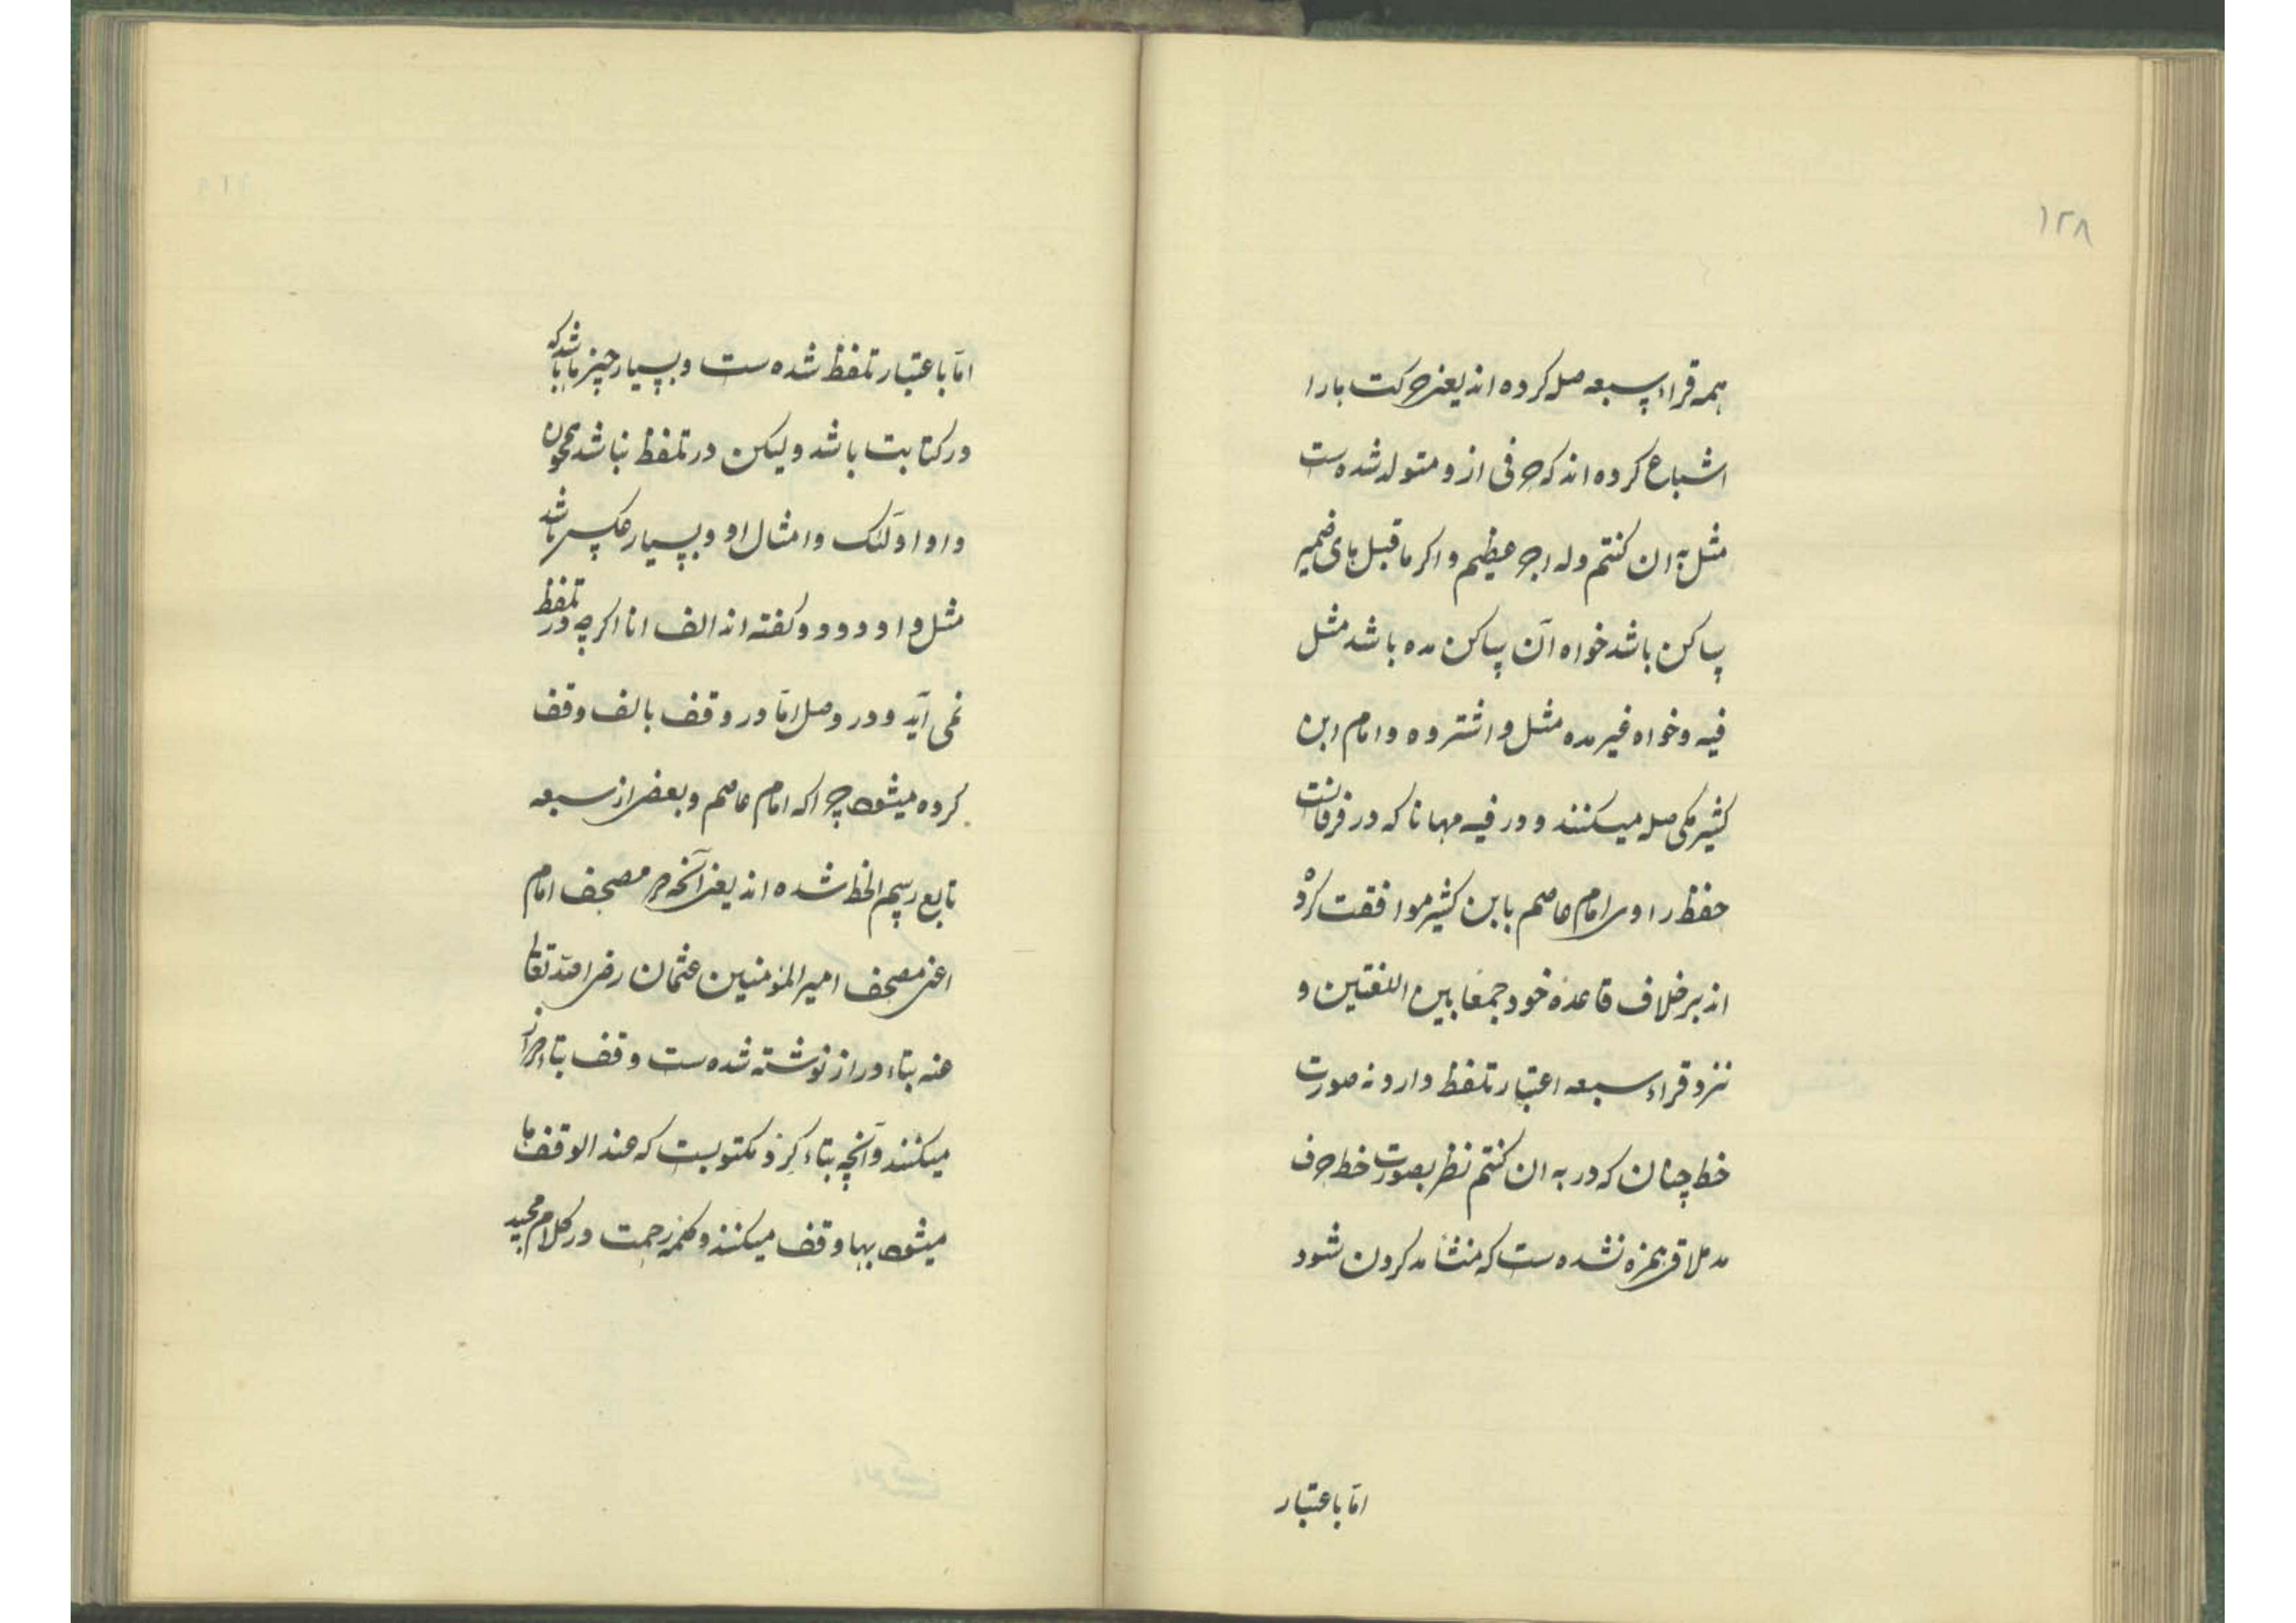 ۱۲۸
همه قراء سبعه صله کرده اند یعنی حرکت ها را
اشباع کرده اند که حرفی از و متولد شده ست
مثل به ان کنتم وله اجر عظیم و اکر ماقبل های ضمیر
ساکن باشد خواه آن ساکن مده باشد مثل
فیه و خواه غیر مده مثل و اشتروه و امام ابن
کثیر مکی صله میکنند و در فیه مهانا که در فرقانست
حفظ راوی امام عاصم با ابن کثیر موافقت کرد
اند بر خلاف قاعده خود جمعا بین اللغتین و
نزد قراء سبعه اعتبار تلفظ دارد نه صورت
خط چنان که در به ان کنتم نظر بصورت خط حرف
مد ملاقی همزه نشده ست که منشأ مد کردن شود
اما باعتبار
اما باعتبار تلفظ شده ست و بسیار چیزها باشد که
در کتابت باشد ولیکن در تلفظ نباشد همچون
واو اولئک و امثال او و بسیار عکس باشد
مثل واو دوود و کفته اند الف انا اکرچه در تلفظ
نمی آید و در وصل اما در وقف بالف وقف
کرده میشود چراکه امام عاصم و بعضی از سبعه
تابع رسم الخط شده اند یعنی آنچه در مصحف امام
اعنی مصحف امیر المؤمنین عثمان رضی الله تعالی
عنه بتاء دراز نوشته شده ست وقف بتاء دراز
میکنند و آنچه بتاء کرد مکتوبست که عند الوقف ها
میشود بها وقف میکنند و کلمه رحمت در کلام مجید